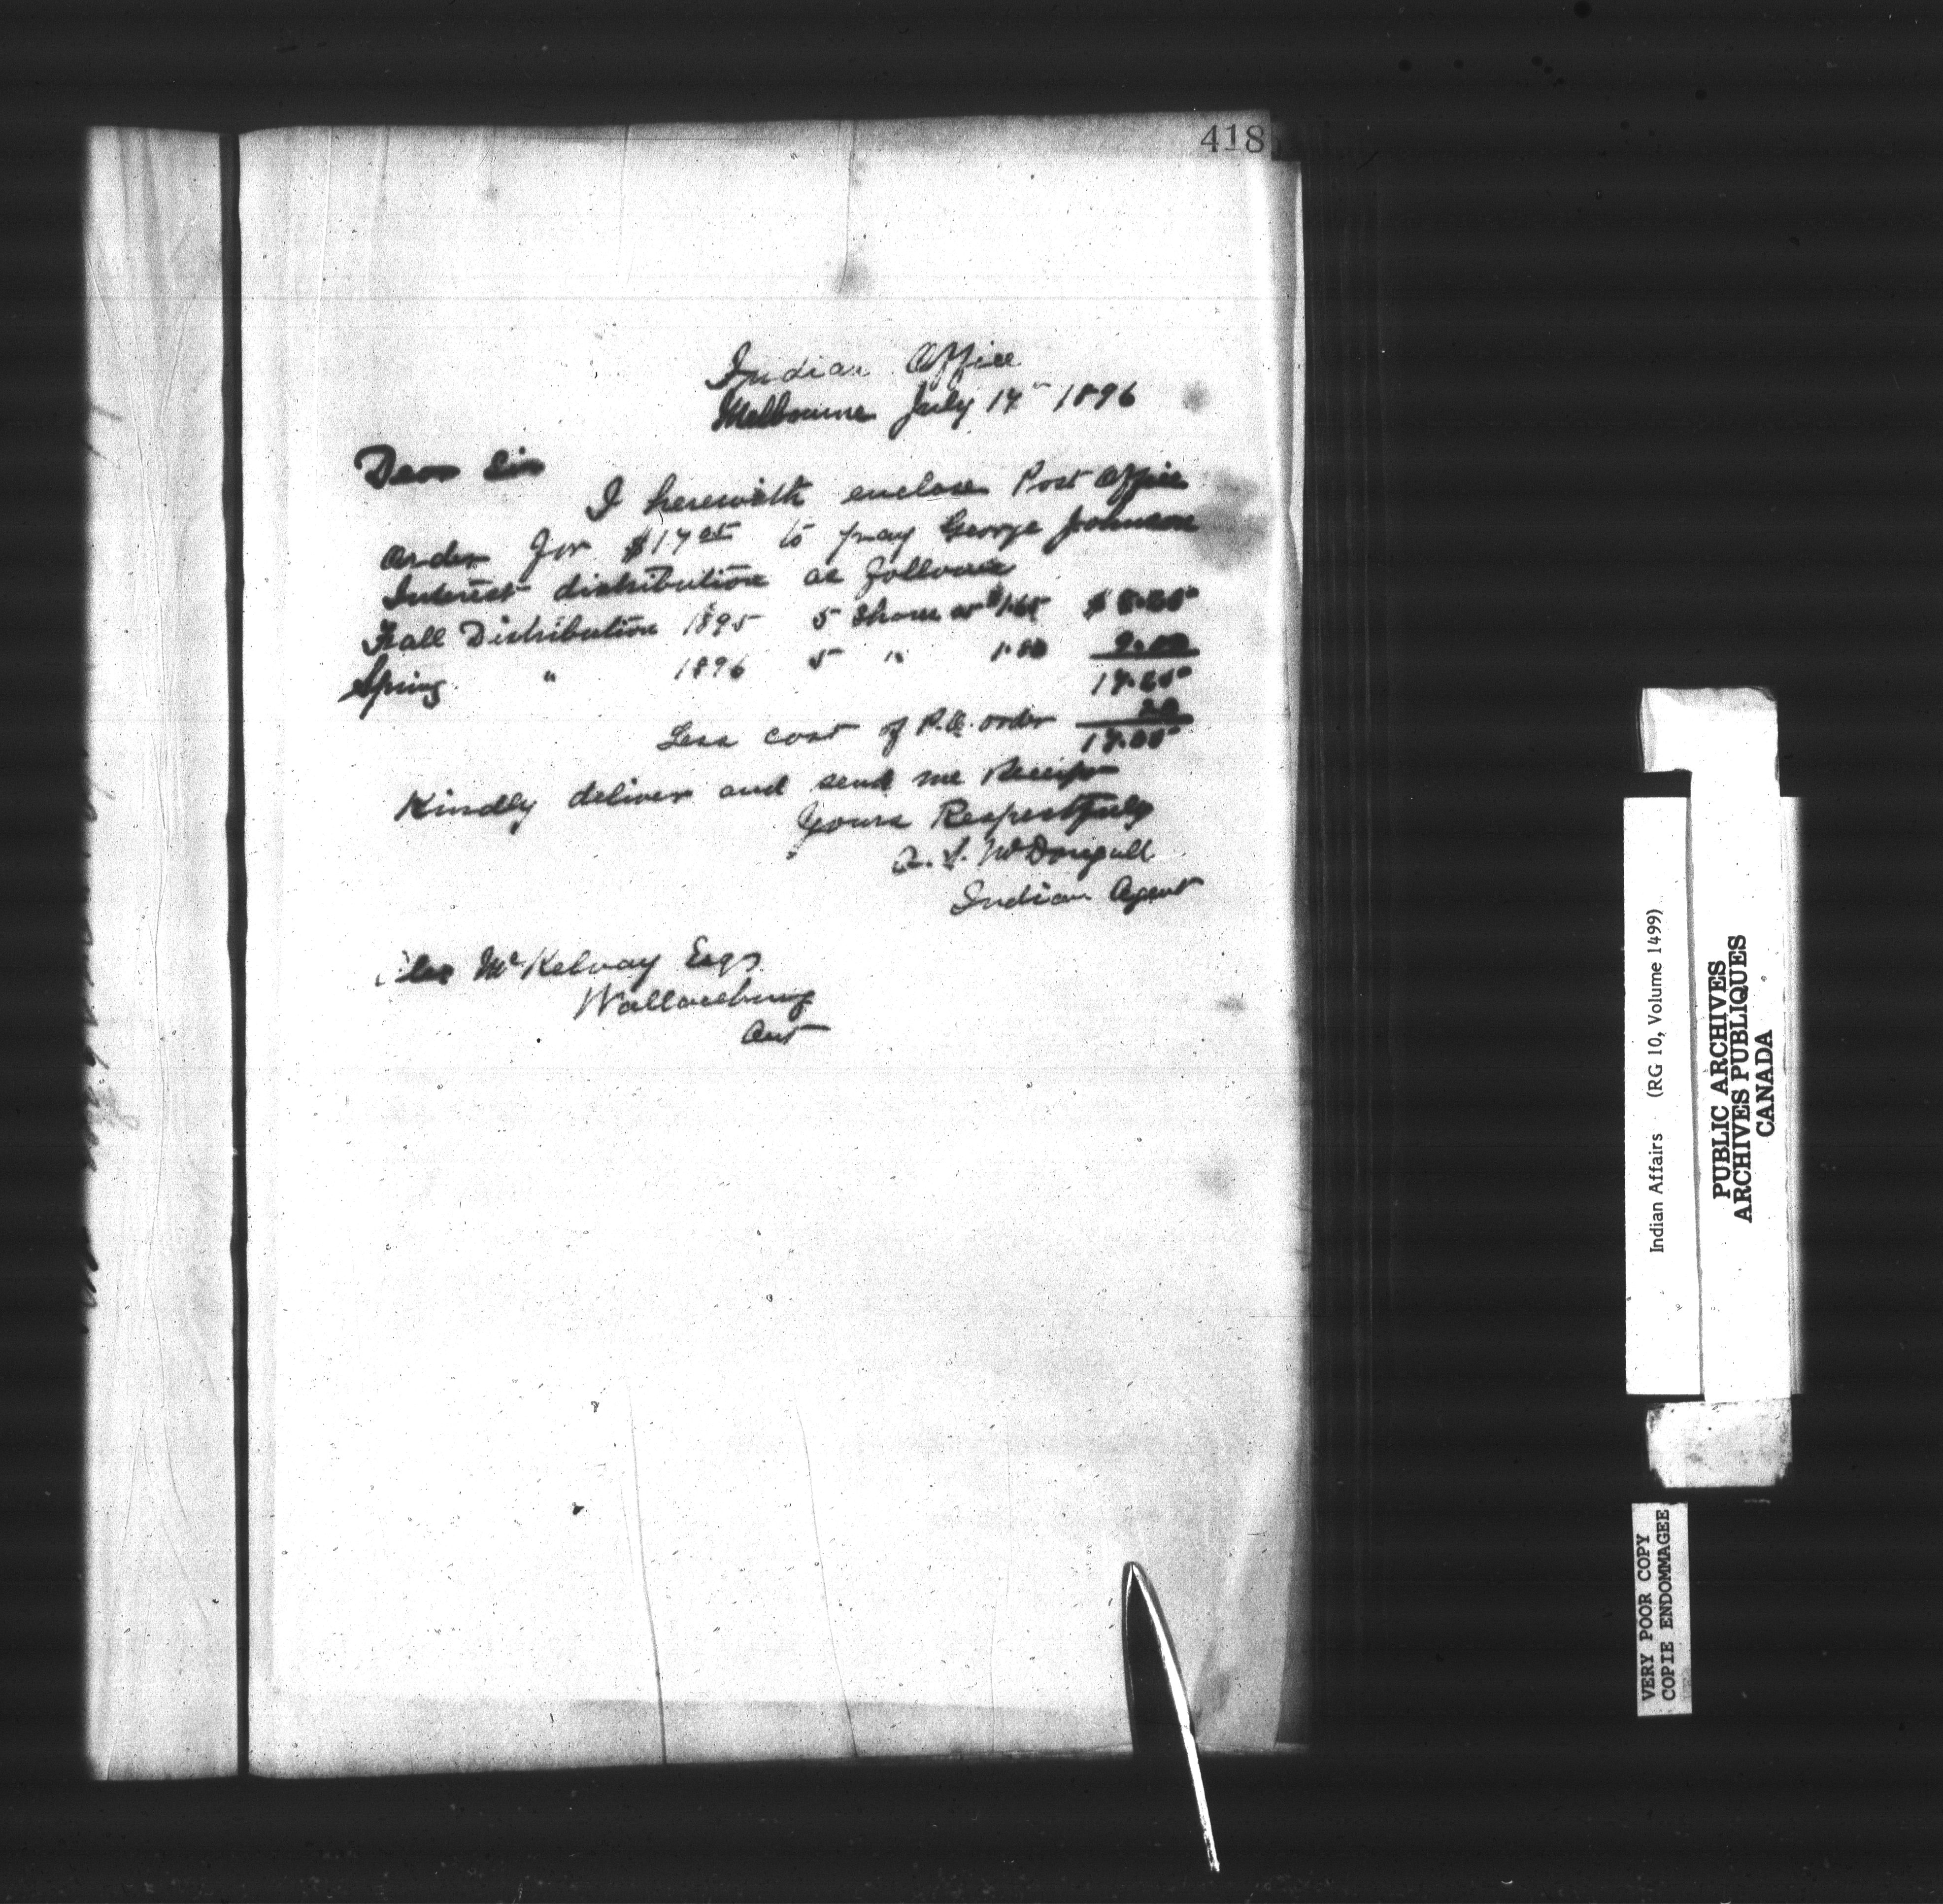 418
Indian Office
Melbourne July 17th 1896
Dear Sir
I herewith enclose Post Office
order for $17.05 to pay George Johnson
Interest distribution as follows
Fall Distribution 1895 5 Shares at $1.65 $8.25
Spring " 1896 5 " 1.80 9.00
17.25
Less cost of P.O. order 20
17.05
Kindly deliver and send me Receipt
Yours Respectfully
A. S. McDougall
Indian Agent
McKelvay Esqr
Wallaceburg
Ont
Indian Affairs (RG 10, Volume 1499)
PUBLIC ARCHIVES
ARCHIVES PUBLIQUES
CANADA
VERY POOR COPY
COPIE ENDOMMAGEE